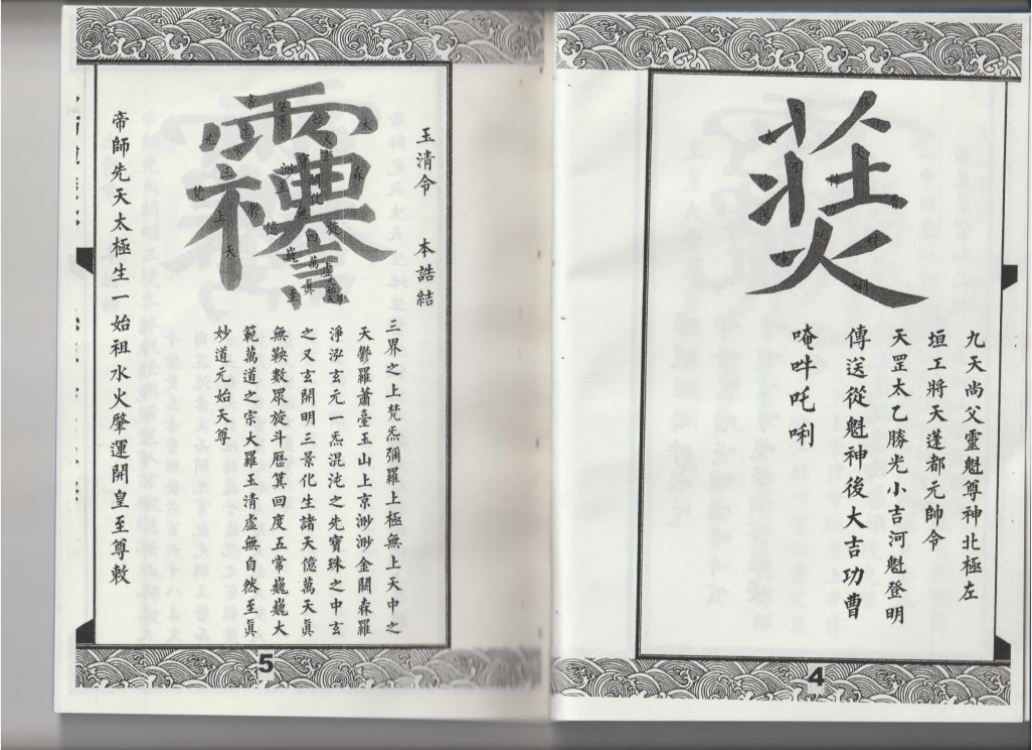 九天尚父靈魁尊神北極左
垣工將天蓬都元帥令
天罡太乙勝光小吉河魁登明
傳送從魁神後大吉功曹
唵吽吒唎
4
玉清令 本誥結
三界之上梵炁彌羅上極無上天中之
天鬱羅蕭臺玉山上京渺渺金闕森羅
淨泓玄元一炁混沌之先寶珠之中玄
之又玄開明三景化生諸天億萬天眞
無鞅數眾旋斗曆箕回度五常巍巍大
範萬道之宗大羅玉清虛無自然至眞
妙道元始天尊
帝師先天太極生一始祖水火肇運開皇至尊敕
5